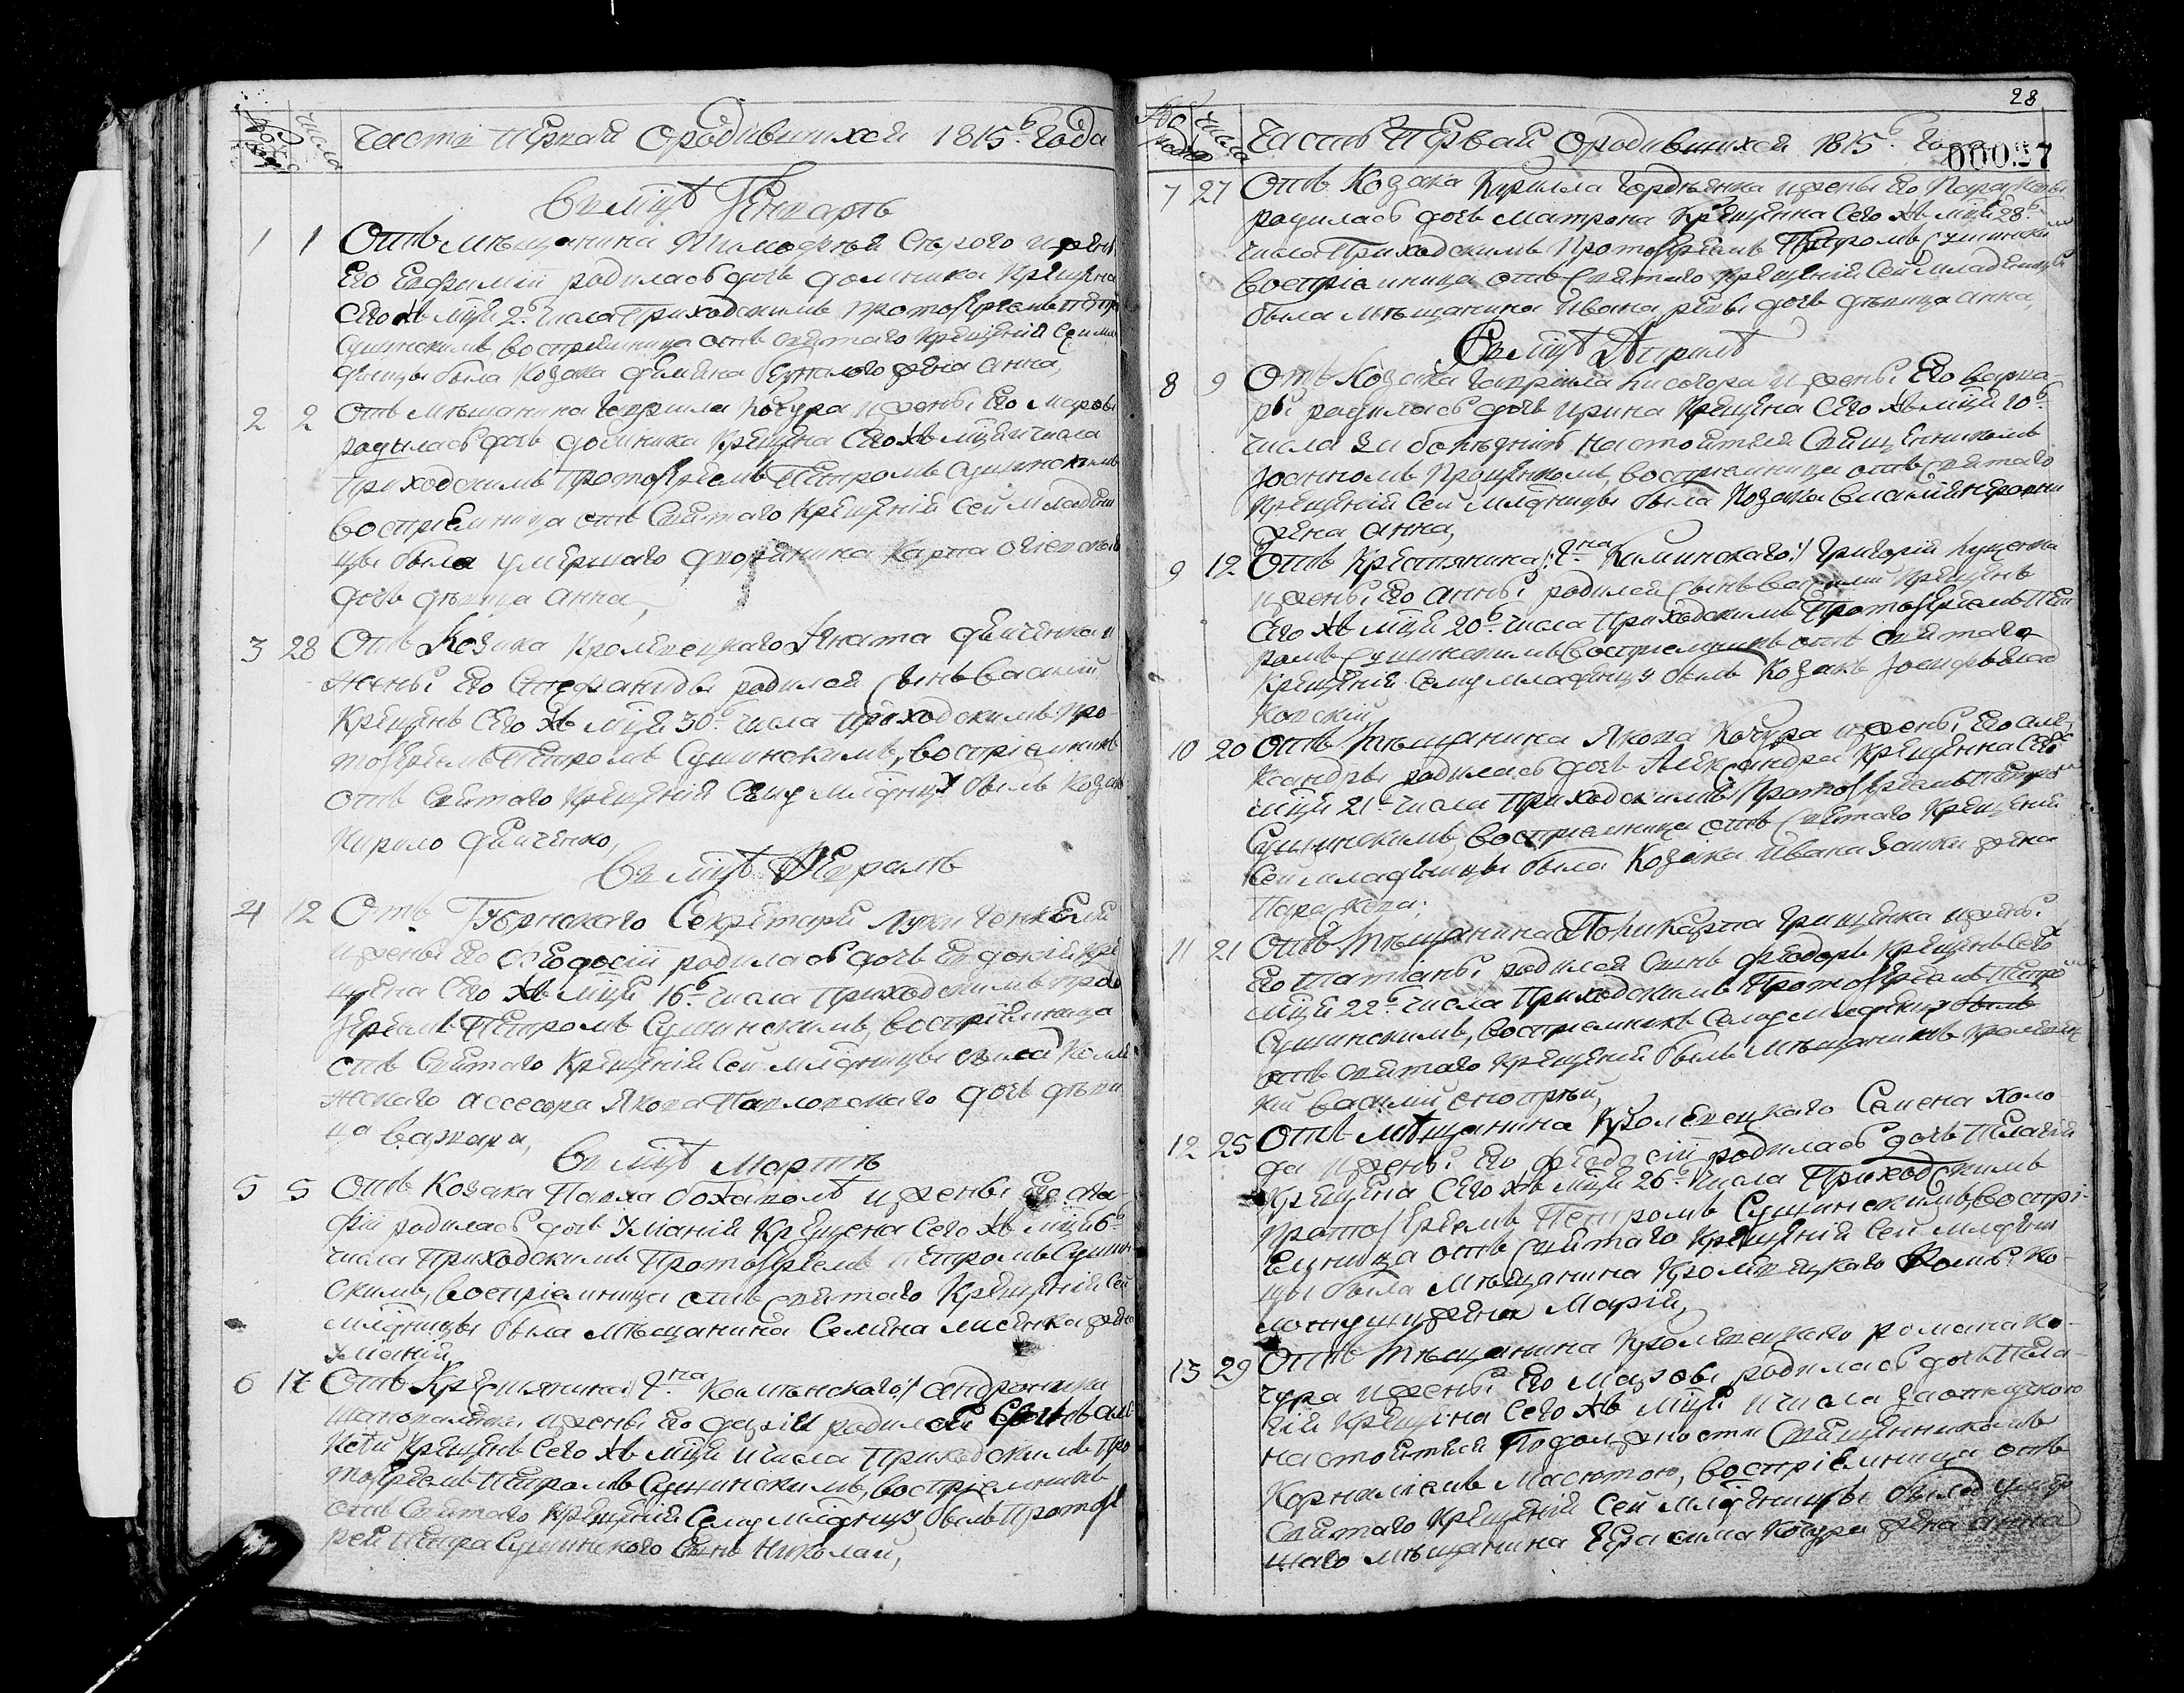 Часть первая о родившихся 1815г. года
Въ мцѣ Генварѣ
1 1 Отъ мѣщанина Тимофея Сѣрого и жены
Его Евфимии родилась дочь Домника крещена
Сего жъ мця 2го числа Приходскимъ протоіереемъ Петро
Сушинскимъ, восприемница отъ святаго крещенія сей мла
денцы была Козака жена Анна,
2 2 Отъ мѣщанина Гаврила Кочура и жены Его Марфы
родылась дочь Домника крещена Сего жъ мця и числа
Приходскимъ Протоіереемъ Петромъ Сушинскимъ
восприемница отъ святаго крещенія сей младен
цы была умершаго дворянина Карпа
дочь дѣвица Анна,
3 28 Отъ Козака Кролевецкого Игната Демченка и
жены Его Стефаниды родился сынъ Василій
крещенъ Сего жъ мця 30го числа приходскимъ про-
тоіереемъ Петромъ Сушинскимъ, восприемникъ
отъ святаго крещенія сему млднцу былъ Козакъ
Кирило Демченко,
Въ мцѣ Февралѣ
4 12 Отъ Секретаря Луки
и жены Его Феодосіи родилась дочь Евдокія кре
щена Сего жъ мця 16го числа Приходскимъ прото
іереемъ Петромъ Сушинскимъ, восприемница
отъ святаго крещенія сей млднцы была Колле
жского ассесора Якова Павловскаго дочь дѣви
ца Варвара,
Въ мцѣ Мартѣ
5 5 Отъ Козака Павла и жены Его Ага-
фіи родилась дочь Уліанія крещена Сего жъ мця 6го
числа Приходскимъ Протоіереемъ Петромъ Сушин
скимъ, восприемница отъ святаго крещенія сей
млднцы была мѣщанина Семена Лисенка жена
Уліанія,
6 17 Отъ Крестянина Гна Каминскаго Андроника
и жены Его Даріи родился сынъ Але
ксѣй крещенъ Сего жъ мця и числа Приходскимъ про
тоіереемъ Петромъ Сушинскимъ, восприемникъ
отъ святаго крещенія сему млднцу былъ протоіе
рея Петра Сушинского сынъ Николай,
28
00027
Часть первая о родившихся 1815г. года
7 27 Отъ Козака Кирилла Гордѣенка и жены Его Параскевы
родилась дочь Матрона крещенна Сего жъ мця 28го
числа Приходскимъ Протоіереемъ Петромъ Сушинскимъ
восприемница отъ святаго крещенія сей младенцы
была мѣщанина Ивана дочь дѣвица Анна,
Въ мцѣ Априлѣ
8 9 Отъ Козака Гаврила Лисогора и жены Его Варва-
ры родилась дочь Ирина крещена Сего жъ мця 10го
числа за болѣзнію настоятеля Священникомъ
Іоанномъ Проценкомъ, восприемница отъ святаго
крещенія сей млднцы была Козака
жена Анна,
9 12 Отъ Крестянина Гна Каминскаго Григорія Луценка
и жены Его Анны родился сынъ Василій крещенъ
Сего жъ мця 20го числа Приходскимъ Протоіереемъ Пет
ромъ Сушинскимъ восприемникъ отъ святаго
крещенія сему младенцу былъ Козакъ Іосифъ
ковскій,
10 20 Отъ мѣщанина Якова Кочура и жены Его Але-
ксандры родилась дочь Александра крещенна Сего жъ
мця 21го числа Приходскимъ Протоіереемъ Петромъ
Сушинскимъ восприемница отъ святаго крещенія
сей младенцы была Козака Ивана жена
Параскева,
11 21 Отъ мѣщанина Поликарпа Грищенка и жены
Его Татіаны родился сынъ Феодоръ крещенъ Сего жъ
мця 22го числа Приходскимъ Протоіереемъ Петромъ
Сушинскимъ, восприемникъ сему младенцу былъ
отъ святаго крещенія былъ мѣщанинъ кролевец
кій Василій
12 25 Отъ мѣщанина Кролевецкаго Семена Холо
да и жены Его Феодосіи родилась дочь Пелагія
крещена Сего жъ мця 26го числа Приходскимъ
Протоіереемъ Петромъ Сушинскимъ, воспри-
емница отъ святаго крещенія сей млднен
цы была мѣщанина Кролевецкаго Фомы Ко-
жена Марія,
13 29 Отъ мѣщанина Кролевецкаго Романа Ко-
чура и жены Его Марфы родилась дочь Пела-
гія крещена Сего жъ мця и числа за отлучкою
настоятеля по должности Священникомъ
Корниліемъ Масютою, восприемница отъ
святаго крещенія сей младенцы была умер
шаго мѣщанина Герасима Кочура жена Анна